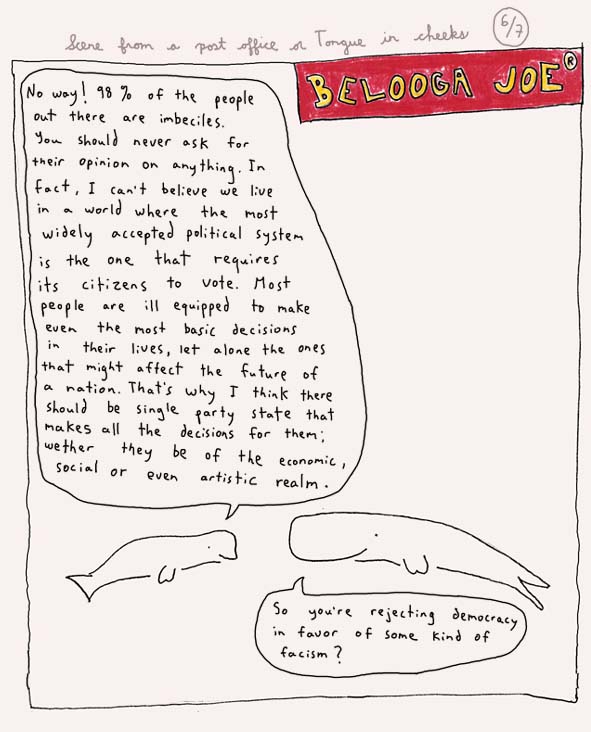 Scene from a post office or Tongue in cheeks
6/7
BELOOGA JOE®
No way! 98 % of the people
out there are imbeciles.
You should never ask for
their opinion on anything. In
fact, I can't believe we live
in a world where the most
widely accepted political system
is the one that requires
its citizens to vote. Most
people are ill equipped to make
even the most basic decisions
in their lives, let alone the ones
that might affect the future of
a nation. That's why I think there
should be single party state that
makes all the decisions for them;
wether they be of the economic,
social or even artistic realm.
So you're rejecting democracy
in favor of some kind of
facism?